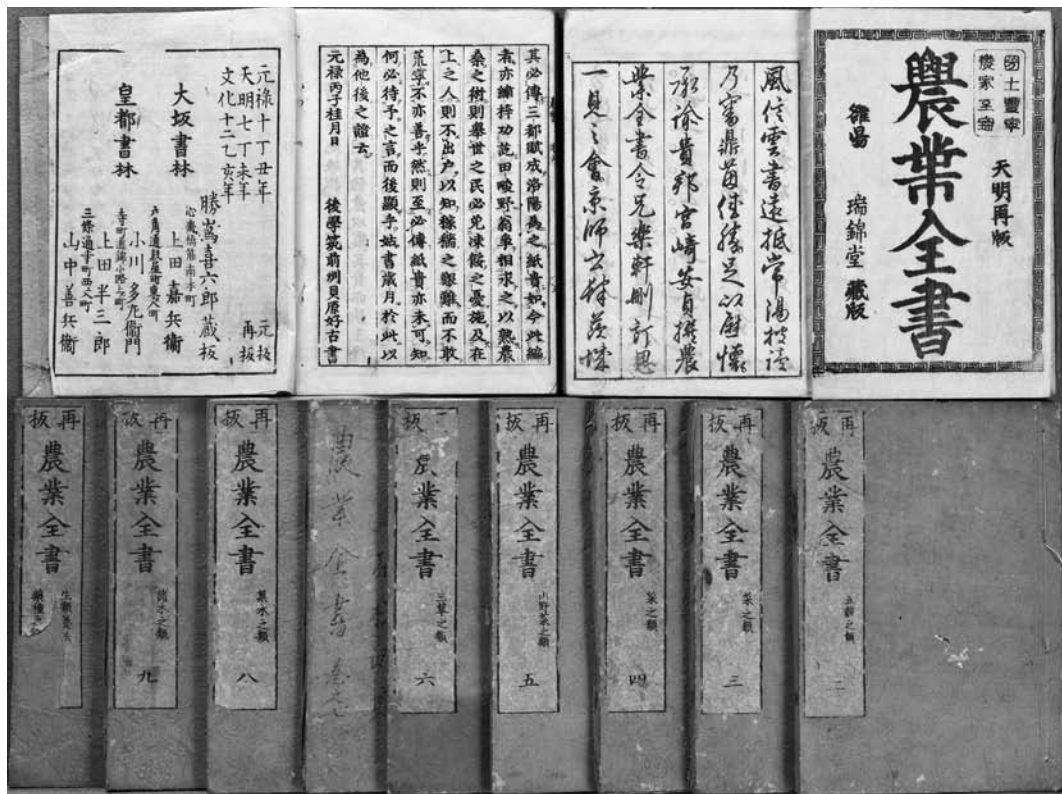 天明再版
農業全書
雒昜 瑞錦堂 藏版
風信雲書遠抵常陽披讀
乃審鼎茵佳勝足以慰懐
承諭貴邦宮崎安貞撰農
業全書令兄樂軒刪訂
一見之會京師書林茨城
其必傳三都賦成洛陽為之紙貴如今此編
者亦繡梓功訖田畯野翁爭相求之以熟農
桑之術則擧世之民必免凍餒之憂施及在
上之人則不出户以知稼穡之艱難而不敢
荒寧不亦善乎然則至必傳紙貴亦未可知
何必待予之言而後顯乎姑書歳月於此以
為他後之證云
元禄丙子桂月日 後學筑前州貝原好古書
元禄十丁丑年 元板
天明七丁未年 再板
文化十二乙亥年
勝嶌喜六郎蔵板
大坂書林
心斎橋筋南本町
上田嘉兵衞
皇都書林
六角通
小川多九衞門
寺町通錦小路上町
上田半三郎
三條通寺町西へ入町
山中善兵衞
再板
農業全書
五穀之類
二
再板
農業全書
菜之類
三
再板
農業全書
菜之類
四
再板
農業全書
山野菜之類
五
板
農業全書
三草之類
六
農業全書巻之七
再板
農業全書
菓木之類
八
再板
農業全書
諸木之類
九
再板
農業全書
生類養法
藥種